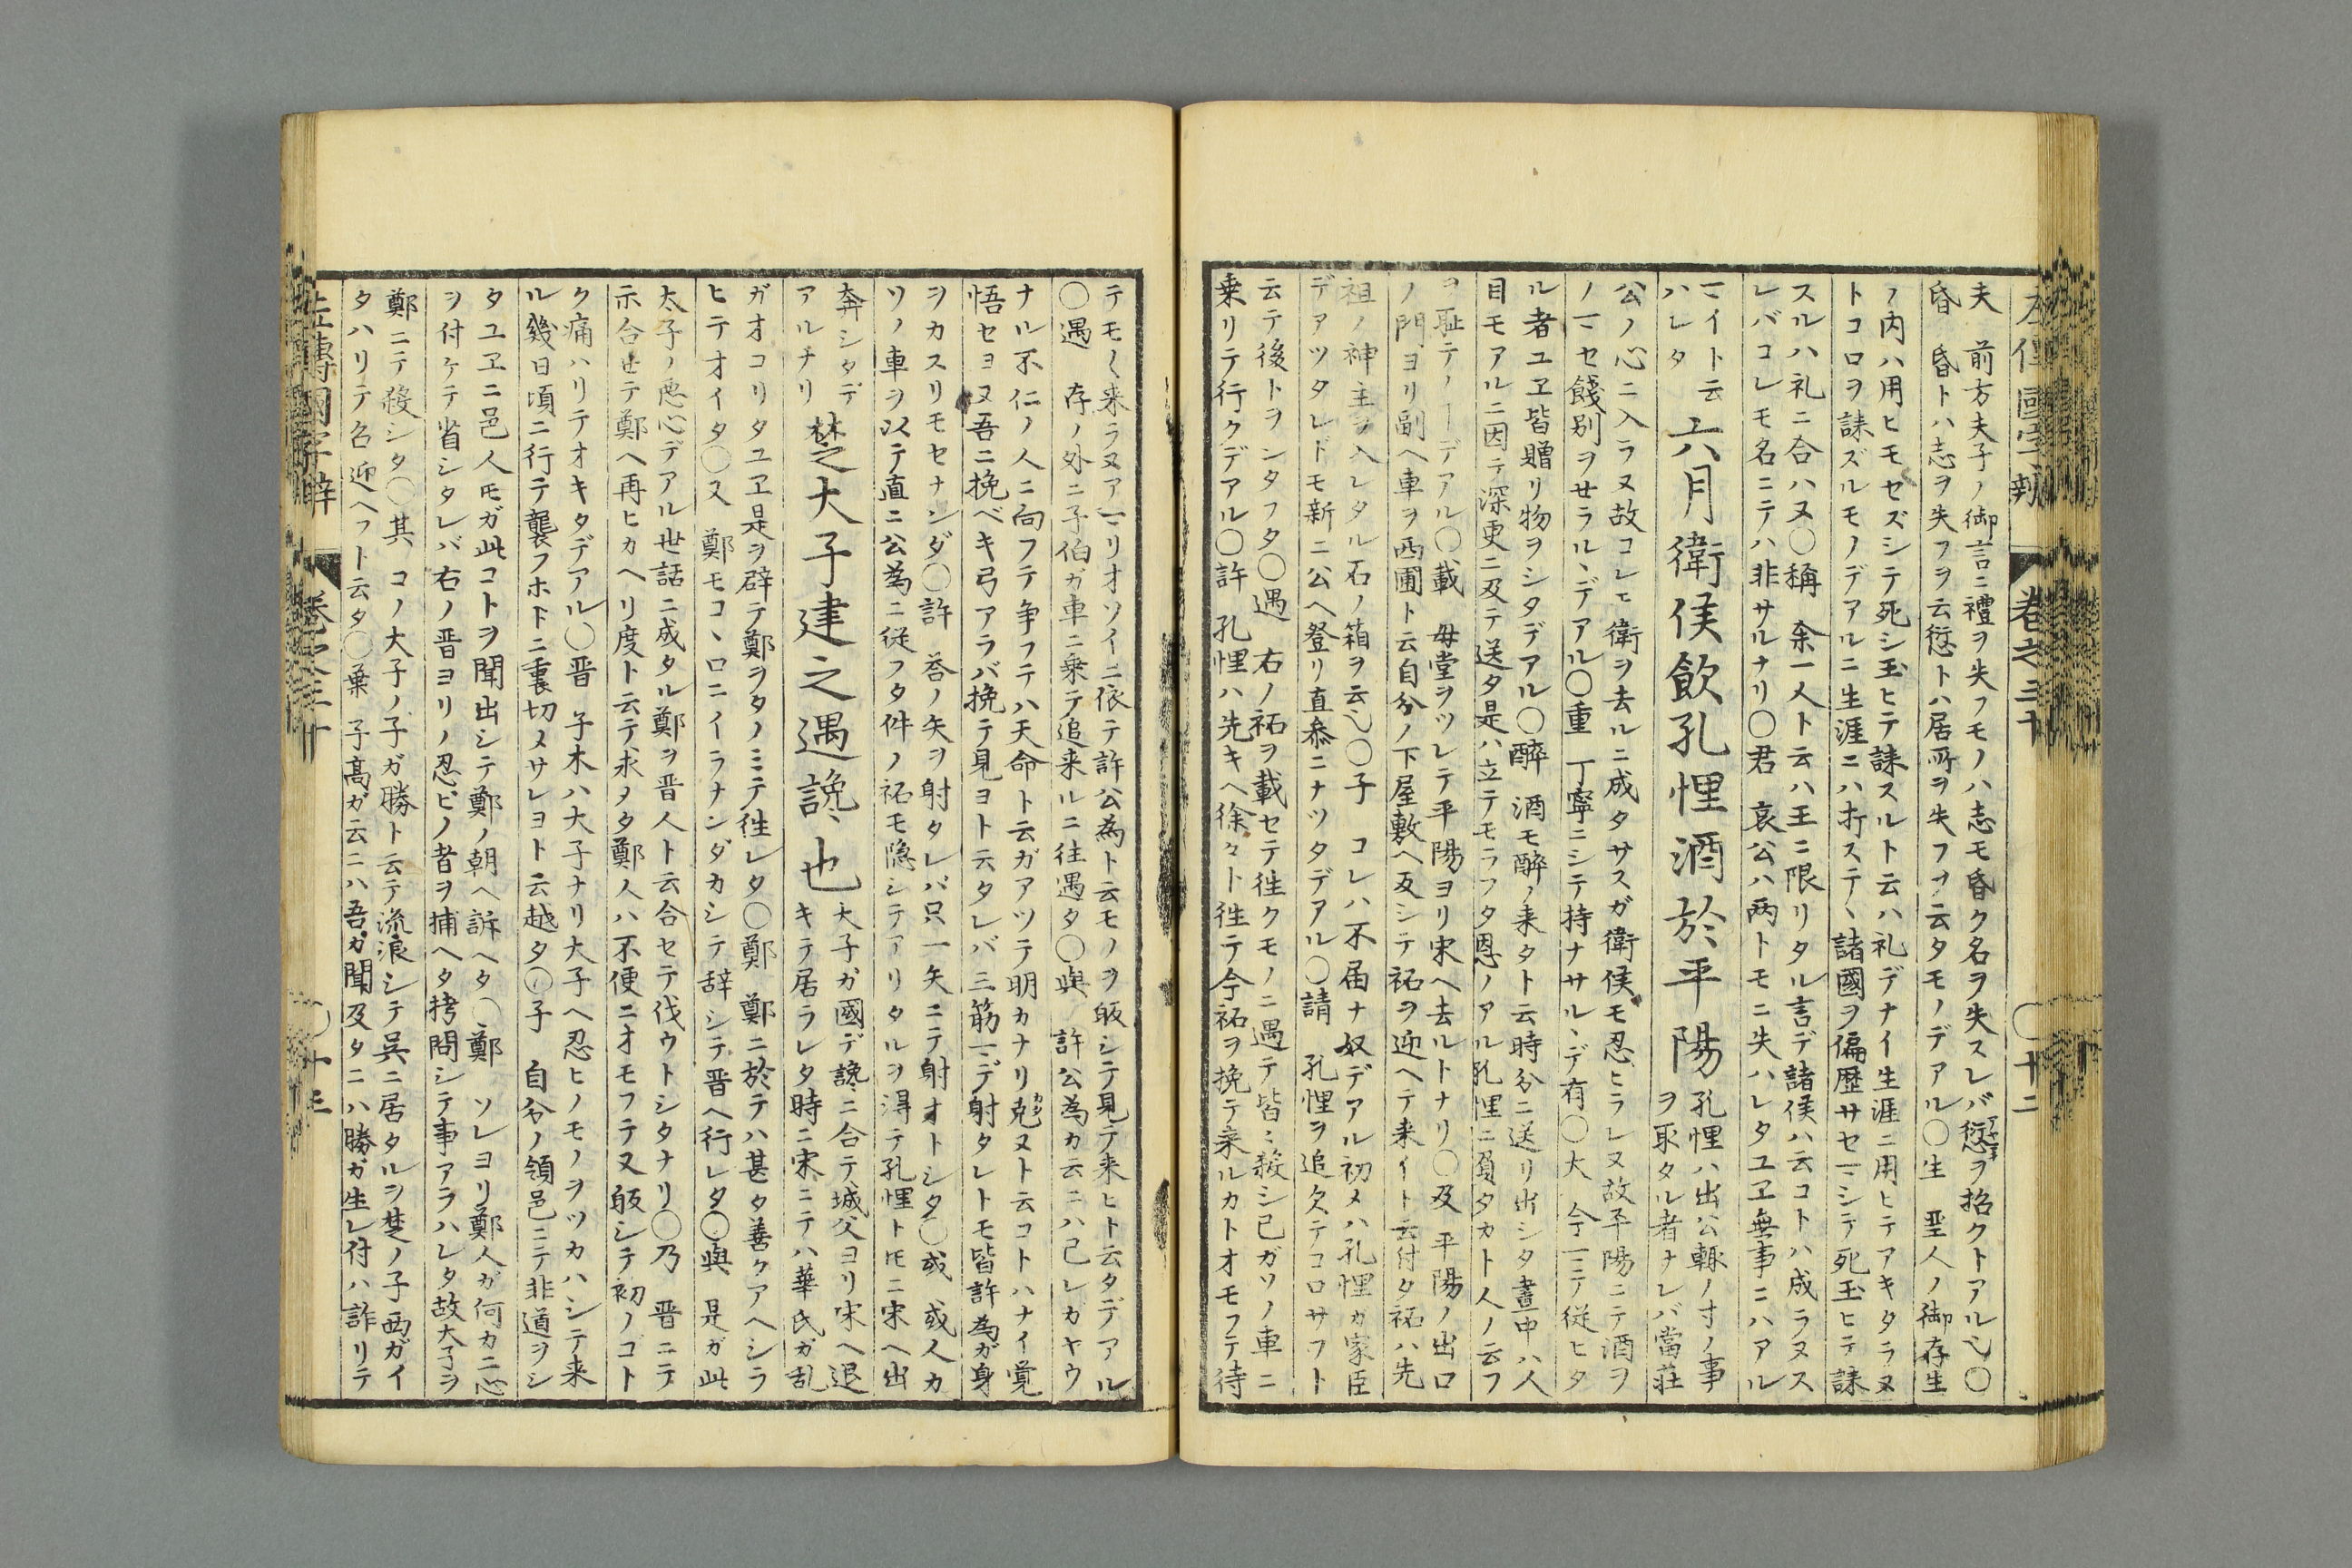 左傳國字辯 巻之三十 〇十二
夫 前方夫子ノ御言ニ禮ヲ失フモノハ志モ昏ク名ヲ失スレバ愆ヲ招クトアル也〇
昏 昏トハ志ヲ失フヲ云愆トハ居所ヲ失フヿ云タモノデアル〇生 聖人ノ御存生
ノ内ハ用ヒモセズシテ死シ玉ヒテ誄スルト云ハ礼デナイ生涯ニ用ヒテアキタラヌ
トコロヲ誄ズルモノデアルニ生涯ニハ打ステヽ諸國ヲ偏歴サセヿシテ死玉ヒテ誄
スルハ礼ニ合ハヌ〇稱 余一人ト云ハ王ニ限リタル言デ諸侯ハ云コトハ成ラヌス
レバコレモ名ニテハ非サルナリ〇君 哀公ハ兩トモニ失ハレタユヱ無事ニハアル
ヿイト云
ハレタ
六月衛侯飲孔悝酒於平陽
孔悝ハ出公輙ノ寸ノ事
ヲ取タル者ナレバ當荘
公ノ心ニ入ラヌ故コレモ衛ヲ去ルニ成タサスガ衛侯モ忍ヒラレヌ故平陽ニテ酒ヲ
ノマセ餞別ヲせラルヽデアル〇重 丁寧ニシテ持ナサルヽデ有〇大 今ヿニテ従ヒタ
ル者ユヱ皆贈リ物ヲシタデアル〇醉 酒モ醉ノ来タト云時分ニ送リ出シタ晝中ハ人
目モアルニ因テ深更ニ及テ送タ是ハ立テモラフタ恩ノアル孔悝ニ負タカト人ノ云フ
ヲ耻テノヿデアル〇載 母堂ヲツレテ平陽ヨリ宋ヘ去ルトナリ〇及 平陽ノ出口
ノ門ヨリ副ヘ車ヲ西圃ト云自分ノ下屋敷ヘ反シテ祏ヲ迎ヘテ来イト云付タ祏ハ先
祖ノ神主ヲ入レタル石ノ箱ヲ云也〇子 コレハ不届ナ奴デアル初メハ孔悝カ家臣
デアツタレドモ新ニ公ヘ登リ直参ニナツタデアル〇請 孔悝ヲ追欠テコロサフト
云テ後トヲシタフタ〇遇 右ノ祏ヲ載セテ徃クモノニ遇テ皆ニ殺シ已ガソノ車ニ
乗リテ行クデアル〇許 孔悝ハ先キヘ徐々ト徃テ今祏ヲ挽テ来ルカトオモフテ待
テモ〱来ラヌアヿリオソイニ依テ許公為ト云モノヲ皈シテ見テ来ヒト云タデアル
〇遇 存ノ外ニ子伯ガ車ニ乗テ追来ルニ往遇タ〇與 許公為カ云ニハ己レガヤウ
ナル不仁ノ人ニ向フテ争フテハ天命ト云ガアツテ明カナリ克ヌト云コトハナイ覚
悟セヨヌ吾ニ挽ベキ弓アラバ挽テ見ヨト云タレバ三筋ヿデ射タレトモ皆許為ガ身
ヲカスリモセナンダ〇許 荅ノ矢ヲ射タレバ只一矢ニテ射オトシタ〇或 或人カ
ソノ車ヲ以テ直ニ公為ニ従フタ件ノ祏モ隠シテアリタルヲ得テ孔悝トモニ宋ヘ出
奔シタデ
アルナリ
楚大子建之遇讒也
大子ガ國デ讒ニ合テ城父ヨリ宋ヘ退
キテ居ラレタ時ニ宋ニテハ華氏ガ乱
ガオコリタユヱ是ヲ辟テ鄭ヲタノミテ徃レタ〇鄭 鄭ニ於テハ甚タ善クアヘシラ
ヒテオイタ〇又 鄭モコヽロニイラナンダカシテ辞シテ晋ヘ行レタ〇與 是ガ此
太子ノ悪心デアル世話ニ成タル鄭ヲ晋人ト云合セテ伐ウトシタナリ〇乃 晋ニテ
示合せテ鄭ヘ再ヒカヘリ度ト云テ求メタ鄭人ハ不便ニオモフテ又皈シテ初ノゴト
ク痛ハリテオキタデアル〇晋 子木ハ大子ナリ大子ヘ忍ヒノモノヲツカハシテ来
ル幾日頃ニ行テ襲フホトニ裏切メサレヨト云越タ〇子 自分ノ領邑ニテ非道ヲシ
タユヱニ邑人モガ此コトヲ聞出シテ鄭ノ朝ヘ訴ヘタ〇鄭 ソレヨリ鄭人ガ何カニ心
ヲ付ケテ省シタレバ右ノ晋ヨリノ忍ビノ者ヲ捕ヘタ拷問シテ事アラハレタ故大子ヲ
鄭ニテ殺シタ〇其 コノ大子ノ子ガ勝ト云テ流浪シテ呉ニ居タルヲ楚ノ子西ガイ
タハリテ召迎ヘフト云タ〇葉 子髙ガ云ニハ吾ガ聞及タニハ勝ガ生レ付ハ詐リテ
左傳國字辯 巻之三十 〇十三